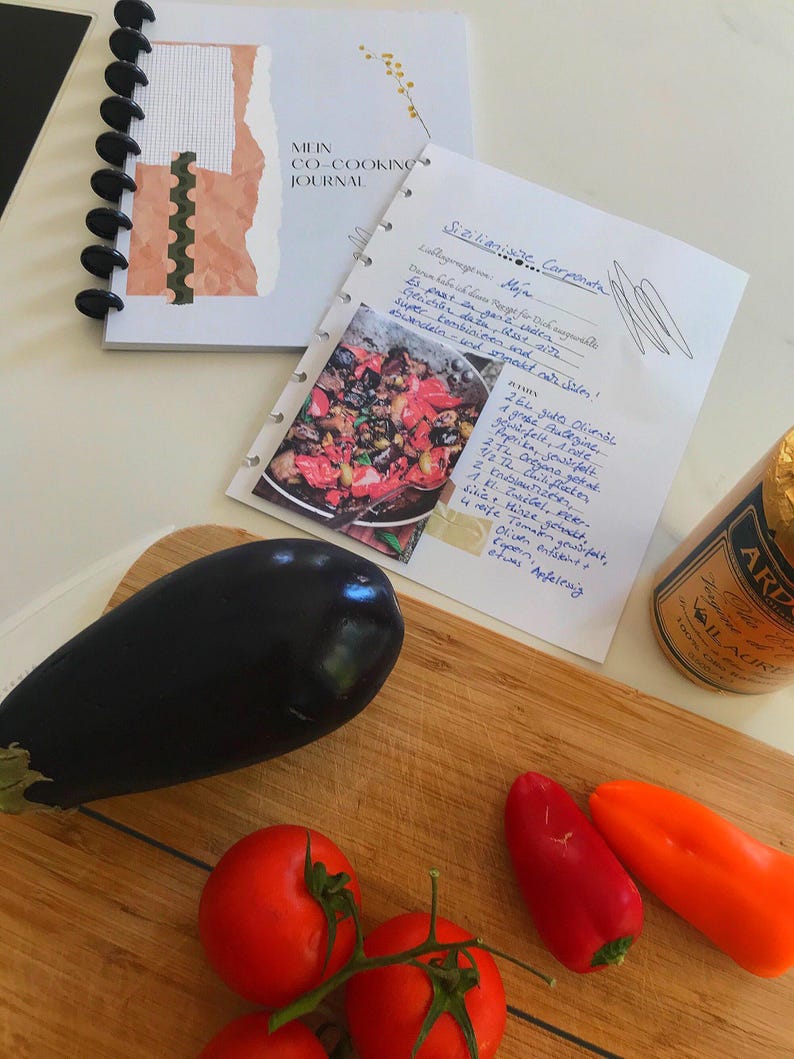 MEIN
CO-COOKING
JOURNAL
Sizilianische Carponata
Lieblingsrezept von: Mir
Darum habe ich dieses Rezept für Dich ausgewählt:
Es passt zu ganz vielen
Gerichten dazu, lässt sich
super kombinieren und
abwandeln - und schmeckt nach Süden!
ZUTATEN
2 EL gutes Olivenöl
1 große Aubergine,
gewürfelt, 1 rote
Paprika, gewürfelt
2 TL Oregano getrok.
1/2 TL Chiliflocken,
2 Knoblauchzehen,
1 kl. Zwiebel, Peter-
silie + Minze gehackt,
4 reife Tomaten gewürfelt,
Oliven entsteint +
Kapern,
etwas Apfelessig
ARD
VALLAURE
100%